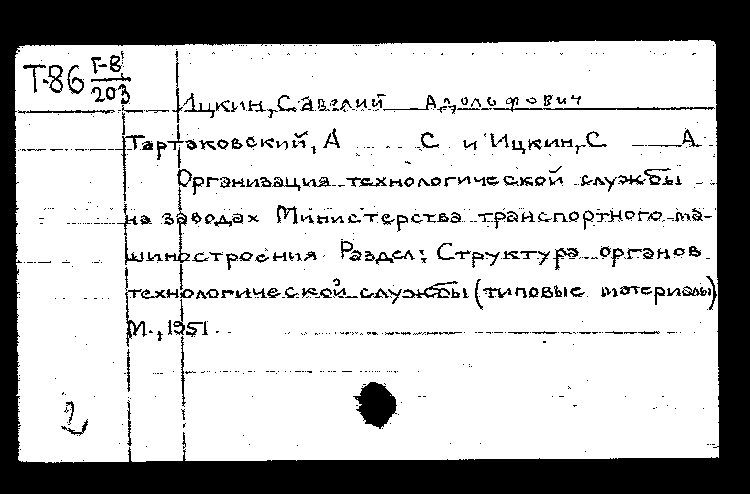 Т-86 Г-8
203
Ицкин, Савелий Адольфович
Тартаковский, А С и Ицкин, С А
Организация технологической службы
на заводах Министерства транспортного ма-
шиностроения Раздел: Структура органов
технологической службы (типовые материалы)
М., 1951.
2